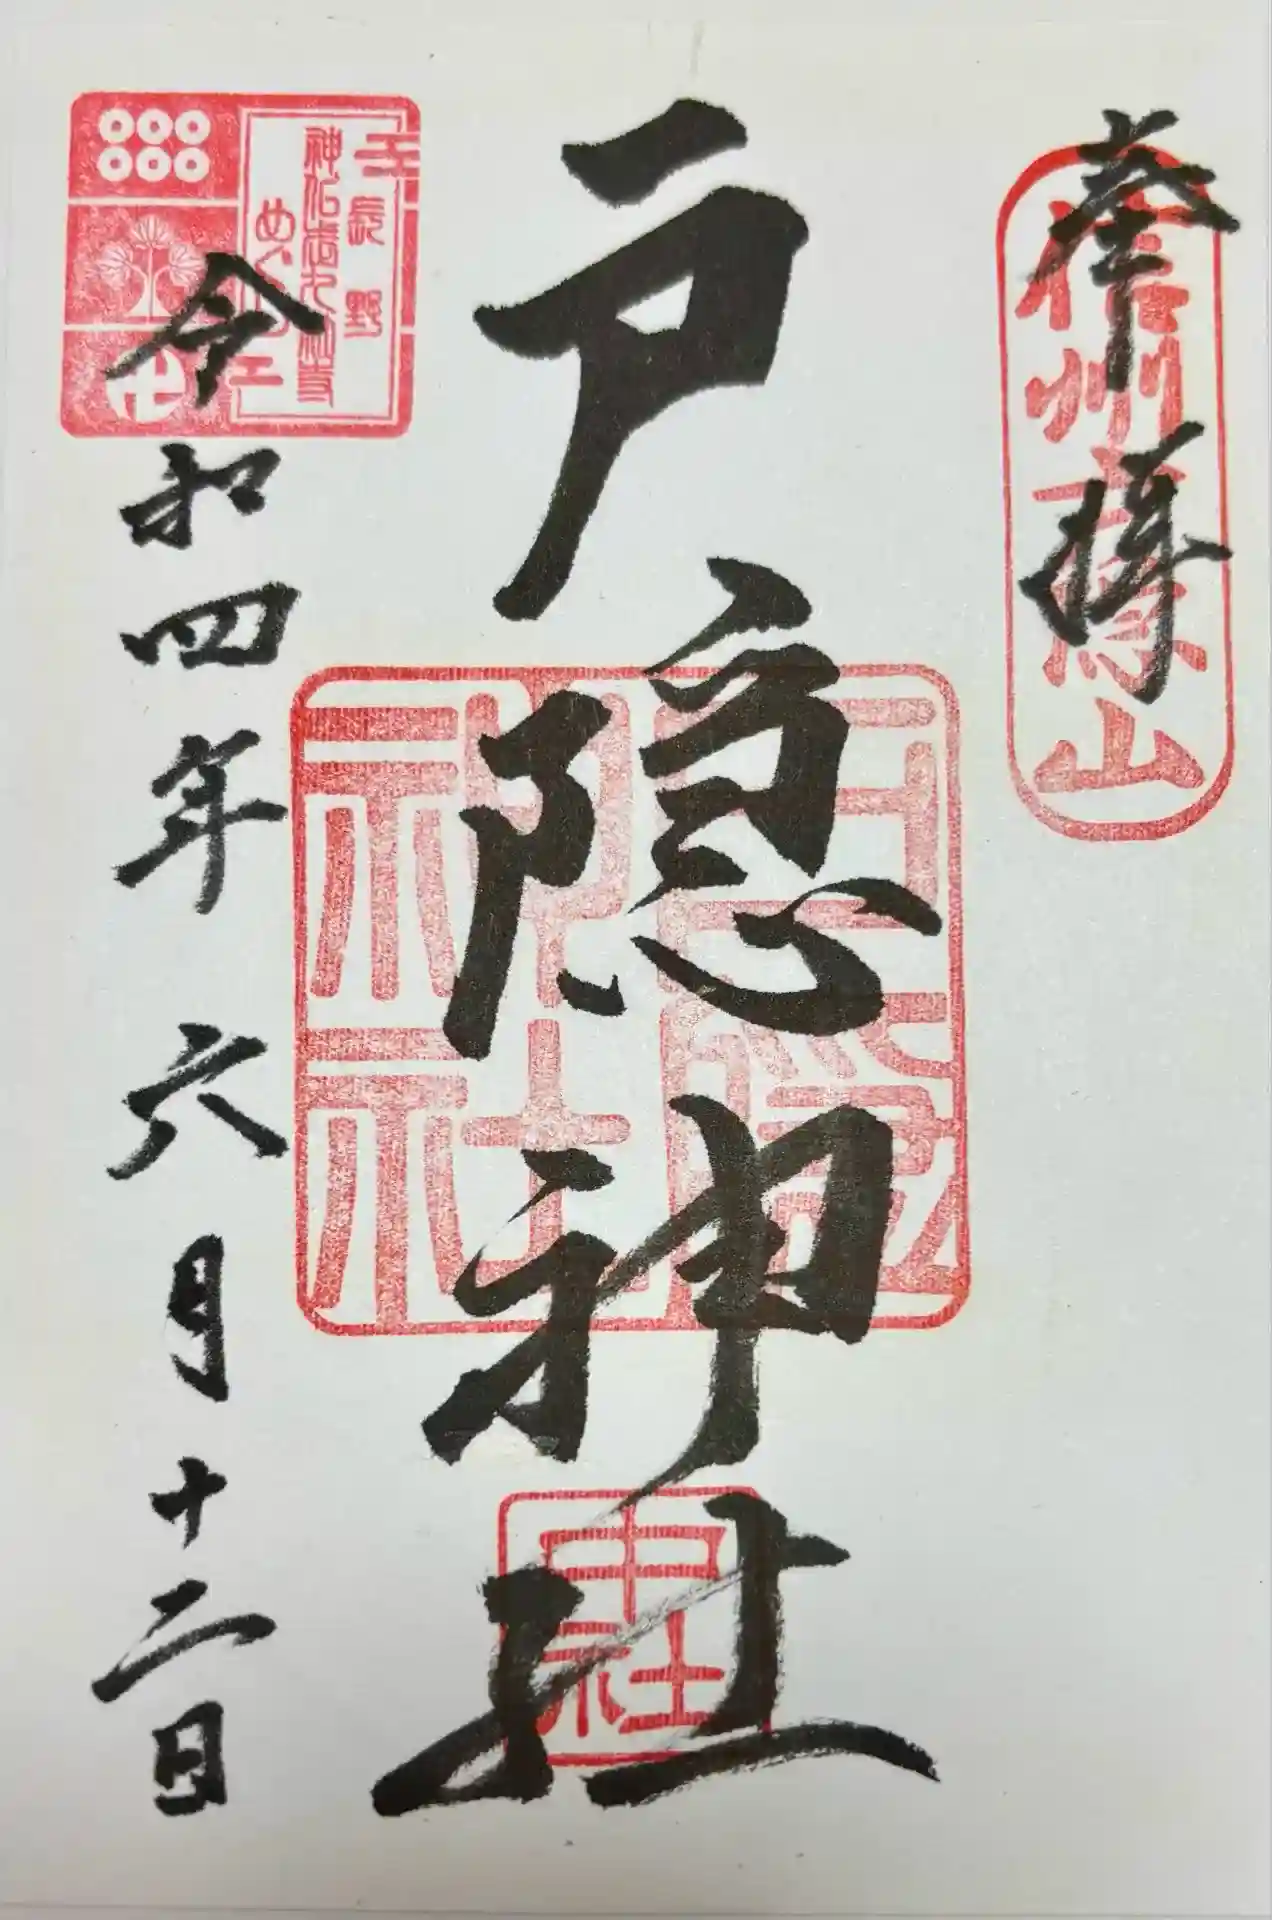 奉拝
信州戸隠山
戸隠神社
戸隠神社
中社
令和四年六月十二日
長野
めぐり